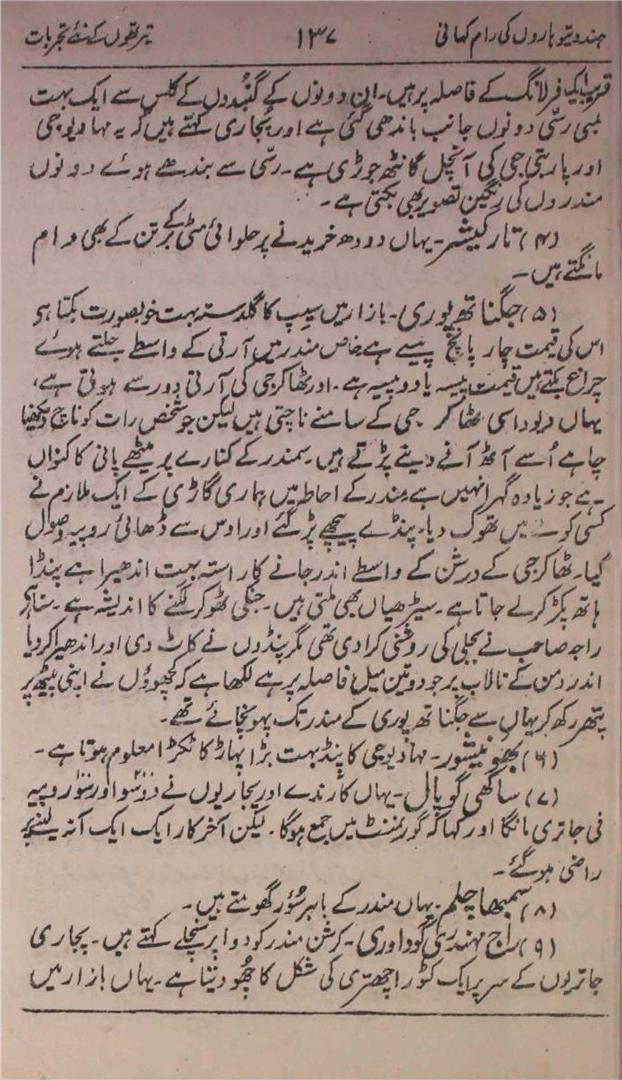 ہندو تیوہاروں کی رام کہانی ۱۳۷ تیرتھوں کے نئے تجربات
قریب ایک فرلانگ کے فاصلہ پر ہیں۔ ان دونوں کے گنبدوں کے کلس سے ایک بہت
لمبی رسّی دونوں جانب باندھی گئی ہے اور پُجاری کہتے ہیں کہ یہ مہادیو جی
اور پاربتی جی کی آنچل گانٹھ جوڑی ہے۔ رسّی سے بندھے ہوئے دونوں
مندروں کی رنگین تصویر بھی بکتی ہے۔
(۴) تارکیشر۔ یہاں دودھ خریدنے پر حلوائی مٹی کے برتن کے بھی دام
مانگتے ہیں۔
(۵) جگناتھ پوری۔ بازار میں سیپ کا گلدستہ بہت خوبصورت بکتا ہے
اس کی قیمت چار پانچ پیسے ہے خاص مندر میں آرتی کے واسطے جلتے ہوئے
چراغ بکتے ہیں قیمت پیسہ یا دو پیسہ ہے۔ اور ٹھاکر جی کی آرتی دور سے ہوتی ہے،
یہاں دیوداسی ٹھاکر جی کے سامنے ناچتی ہیں لیکن جو شخص رات کو ناچ دیکھنا
چاہے اُسے آٹھ آنے دینے پڑتے ہیں۔ سمندر کے کنارے پر میٹھے پانی کا کنواں
ہے جو زیادہ گہرا نہیں ہے مندر کے احاطہ میں ہماری گاڑی کے ایک ملازم نے
کسی کو میں تھوک دیا۔ پنڈے پیچھے پڑ گئے اور اوس سے ڈھائی روپیہ وصول
کیا۔ ٹھاکر جی کے درشن کے واسطے اندر جانے کا راستہ بہت اندھیرا ہے پنڈا
ہاتھ پکڑ کر لے جاتا ہے۔ سیڑھیاں بھی ملتی ہیں۔ جنکی ٹھوکر لگنے کا اندیشہ ہے۔ سنا کہ
راجہ صاحب نے بجلی کی روشنی کرا دی تھی مگر پنڈوں نے کاٹ دی اور اندھیرا کر دیا
اندر دمن کے تالاب پر جو دو تین میل فاصلہ پر ہے لکھا ہے کہ کچھوؤں نے اپنی پیٹھ پر
پتھر رکھ کر یہاں سے جگناتھ پوری کے مندر تک پہونچائے تھے۔
(۶) بھونیشور۔ مہادیو جی کا پنڈ بہت بڑا پہاڑ کا ٹکڑا معلوم ہوتا ہے۔
(۷) ساکھی گوپال۔ یہاں کارندے اور پجاریوں نے دو دو سو اور سو سو روپیہ
فی جاتری مانگا اور کہا کہ گورنمنٹ میں جمع ہوگا۔ لیکن آخر کار ایک ایک آنہ لینے پر
راضی ہو گئے۔
(۸) سمبھاچلم۔ یہاں مندر کے باہر سُؤر گھومتے ہیں۔
(۹) راج مہندری گوداوری۔ کرشن مندر کو دوا پر سنچلے کہتے ہیں۔ پجاری
جاتریوں کے سر پر ایک کٹورا چھتری کی شکل کا چھو دیتا ہے۔ یہاں بازار میں